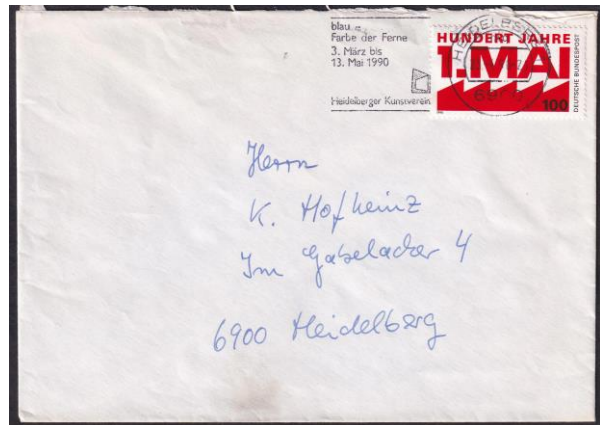 blau =
Farbe der Ferne
3. März bis
13. Mai 1990
Heidelberger Kunstverein
HUNDERT JAHRE
1.MAI
100
DEUTSCHE BUNDESPOST
HEIDELBERG
Herrn
K. Hofheinz
Im Gabelacker 4
6900 Heidelberg